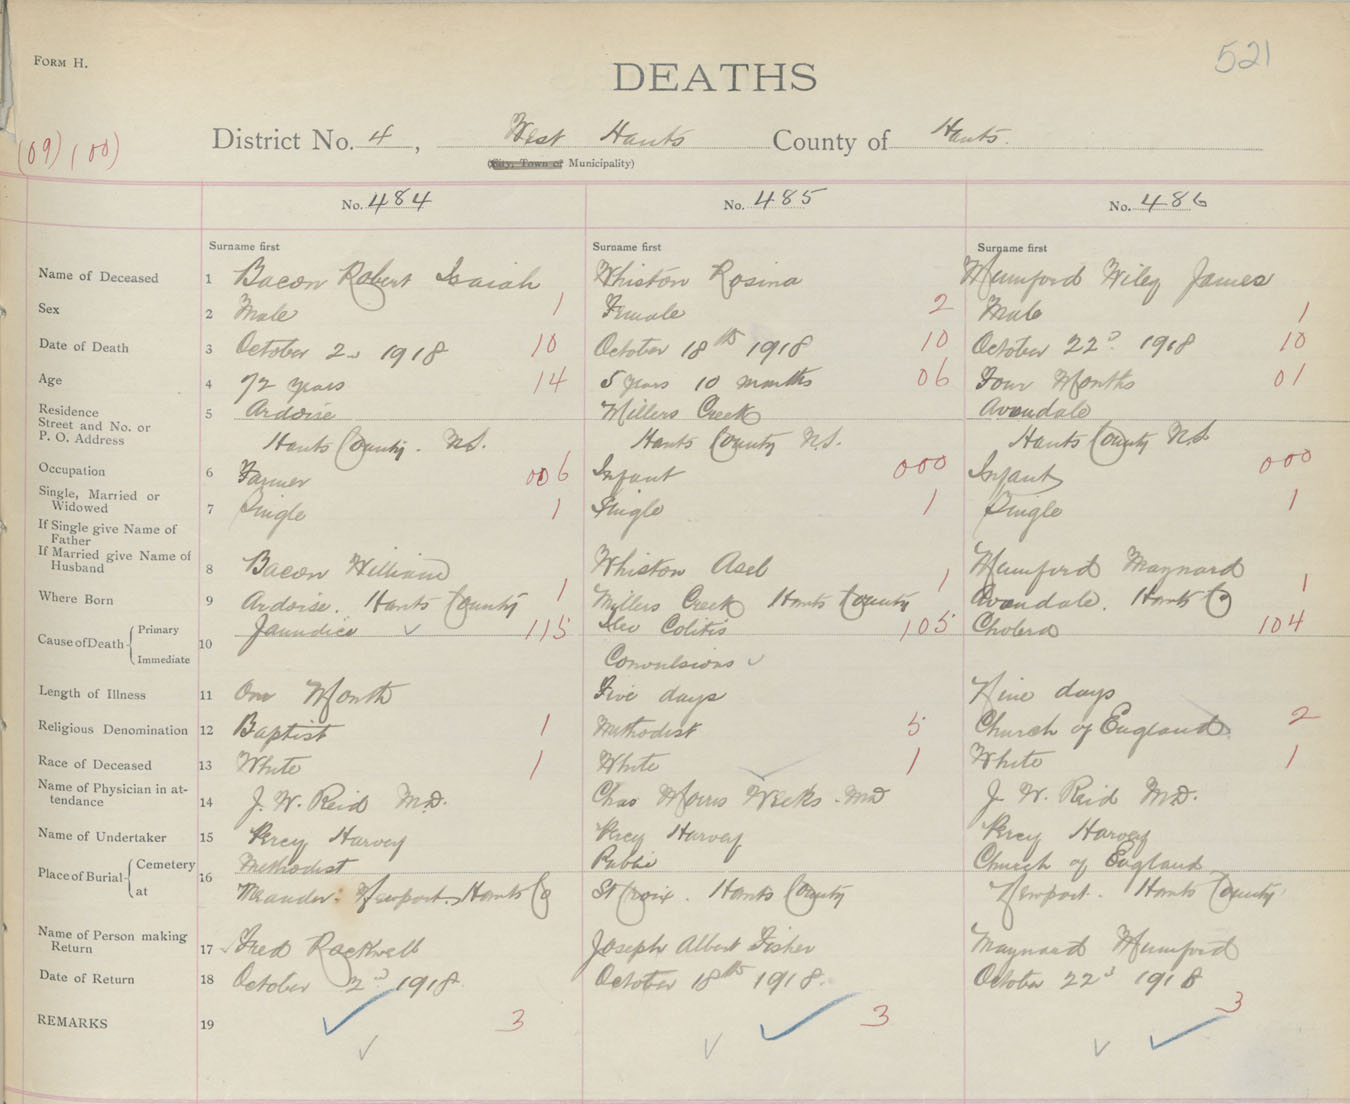 521
FORM H.
DEATHS
(09) (00)
District No. 4, West Hants County of Hants.
(City, Town or Municipality)
No. 484 No. 485 No. 486
Surname first Surname first Surname first
Name of Deceased 1 Bacon Robert Isaiah Whiston Rosina Mumford Wiley James
Sex 2 Male 1 Female 2 Male 1
Date of Death 3 October 2nd 1918 10 October 18th 1918 10 October 22d 1918 10
Age 4 72 years 14 5 years 10 months 06 Four Months 01
Residence 5 Ardoise Millers Creek Avondale
Street and No. or
P. O. Address Hants County. N.S. Hants County N.S. Hants County N.S.
Occupation 6 Farmer 006 Infant 000 Infant 000
Single, Married or
Widowed 7 Single 1 Single 1 Single 1
If Single give Name of
Father
If Married give Name of
Husband 8 Bacon William Whiston Asel Mumford Maynard
Where Born 9 Ardoise. Hants County 1 Millers Creek Hants County 1 Avondale. Hants Co 1
Cause of Death Primary 10 Jaundice 115 Ileo Colitis 105 Cholera 104
Immediate Convulsions
Length of Illness 11 One Month Five days Nine days
Religious Denomination 12 Baptist 1 Methodist 5 Church of England 2
Race of Deceased 13 White 1 White 1 White 1
Name of Physician in at-
tendance 14 J. W. Reid M.D. Chas Morris Weeks. MD J. W. Reid M.D.
Name of Undertaker 15 Percy Harvey Percy Harvey Percy Harvey
Place of Burial Cemetery 16 Methodist Public Church of England
at Meander. Newport. Hants Co St Croix. Hants County Newport. Hants County
Name of Person making
Return 17 Fred Rockwell Joseph Albert Fisher Maynard Mumford
Date of Return 18 October 2d 1918 October 18th 1918. October 22d 1918
REMARKS 19 3 3 3